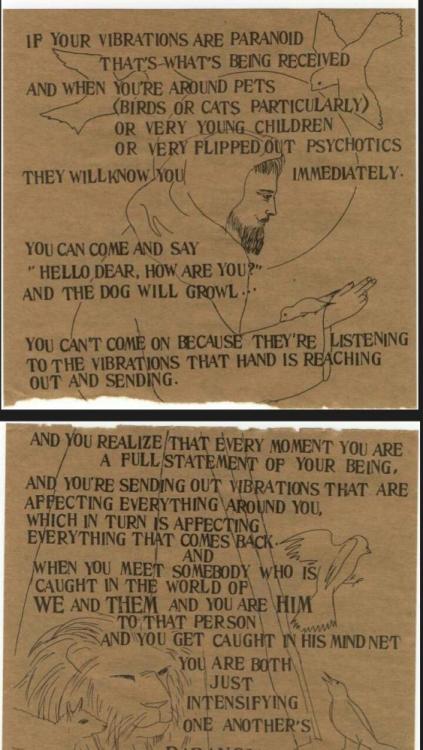 IF YOUR VIBRATIONS ARE PARANOID
THAT'S WHAT'S BEING RECEIVED
AND WHEN YOU'RE AROUND PETS
(BIRDS OR CATS PARTICULARLY)
OR VERY YOUNG CHILDREN
OR VERY FLIPPED OUT PSYCHOTICS
THEY WILL KNOW YOU IMMEDIATELY.
YOU CAN COME AND SAY
"HELLO, DEAR, HOW ARE YOU?"
AND THE DOG WILL GROWL...
YOU CAN'T COME ON BECAUSE THEY'RE LISTENING
TO THE VIBRATIONS THAT HAND IS REACHING
OUT AND SENDING.
AND YOU REALIZE THAT EVERY MOMENT YOU ARE
A FULL STATEMENT OF YOUR BEING,
AND YOU'RE SENDING OUT VIBRATIONS THAT ARE
AFFECTING EVERYTHING AROUND YOU,
WHICH IN TURN IS AFFECTING
EVERYTHING THAT COMES BACK.
AND
WHEN YOU MEET SOMEBODY WHO IS
CAUGHT IN THE WORLD OF
WE AND THEM AND YOU ARE HIM
TO THAT PERSON
AND YOU GET CAUGHT IN HIS MIND NET
YOU ARE BOTH
JUST
INTENSIFYING
ONE ANOTHER'S